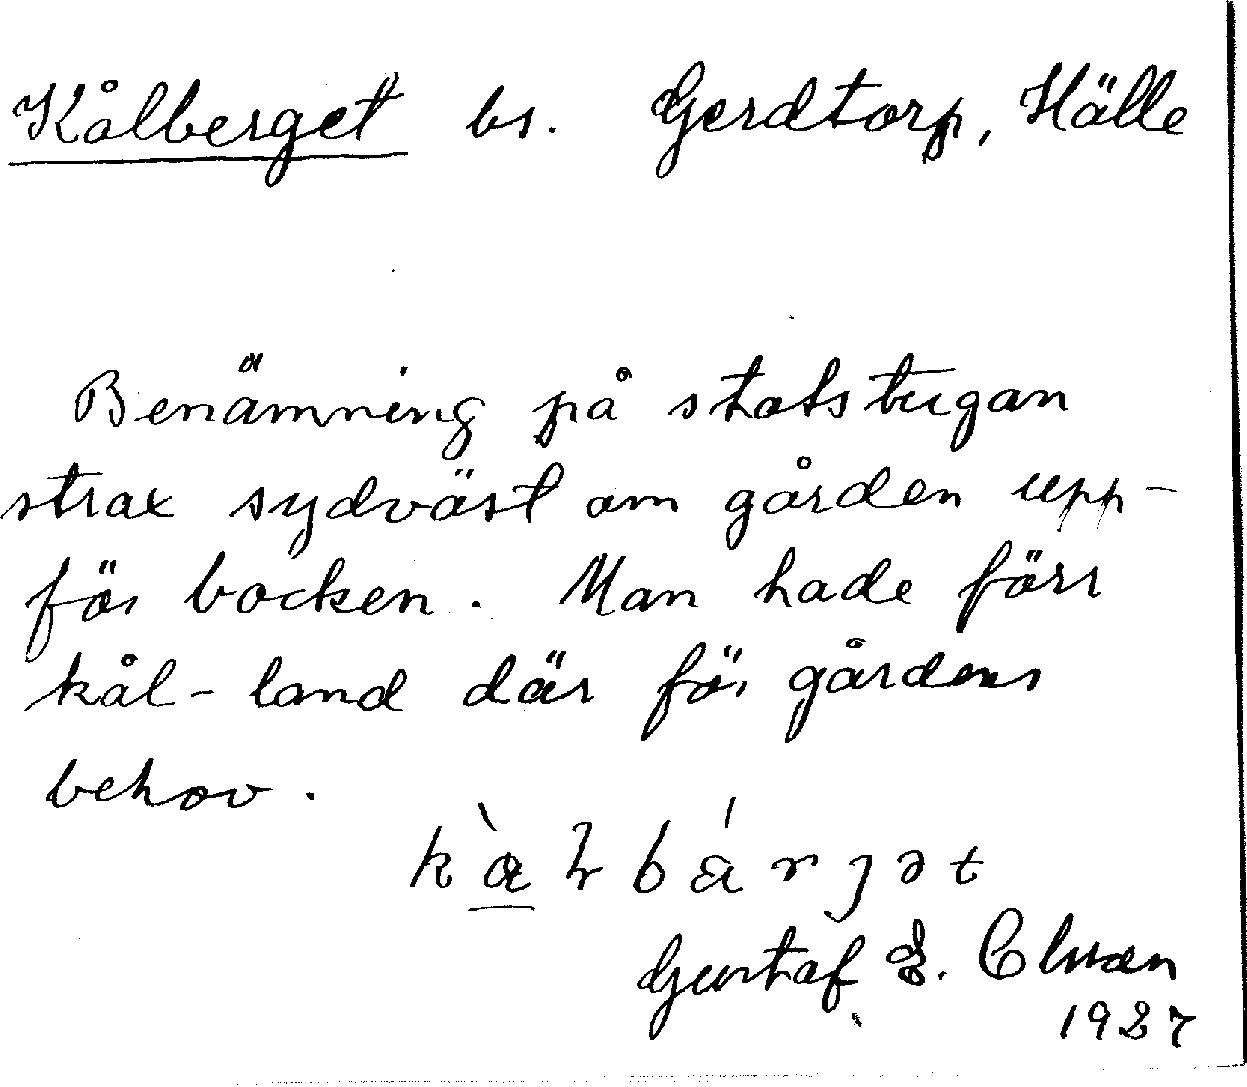 Kålberget bs. Gerdtorp, Hälle
Benämning på statstugan
strax sydväst om gården upp-
för backen. Man hade förr
kål-land där för gårdens
behov.
Gustaf E. Olsson
1927